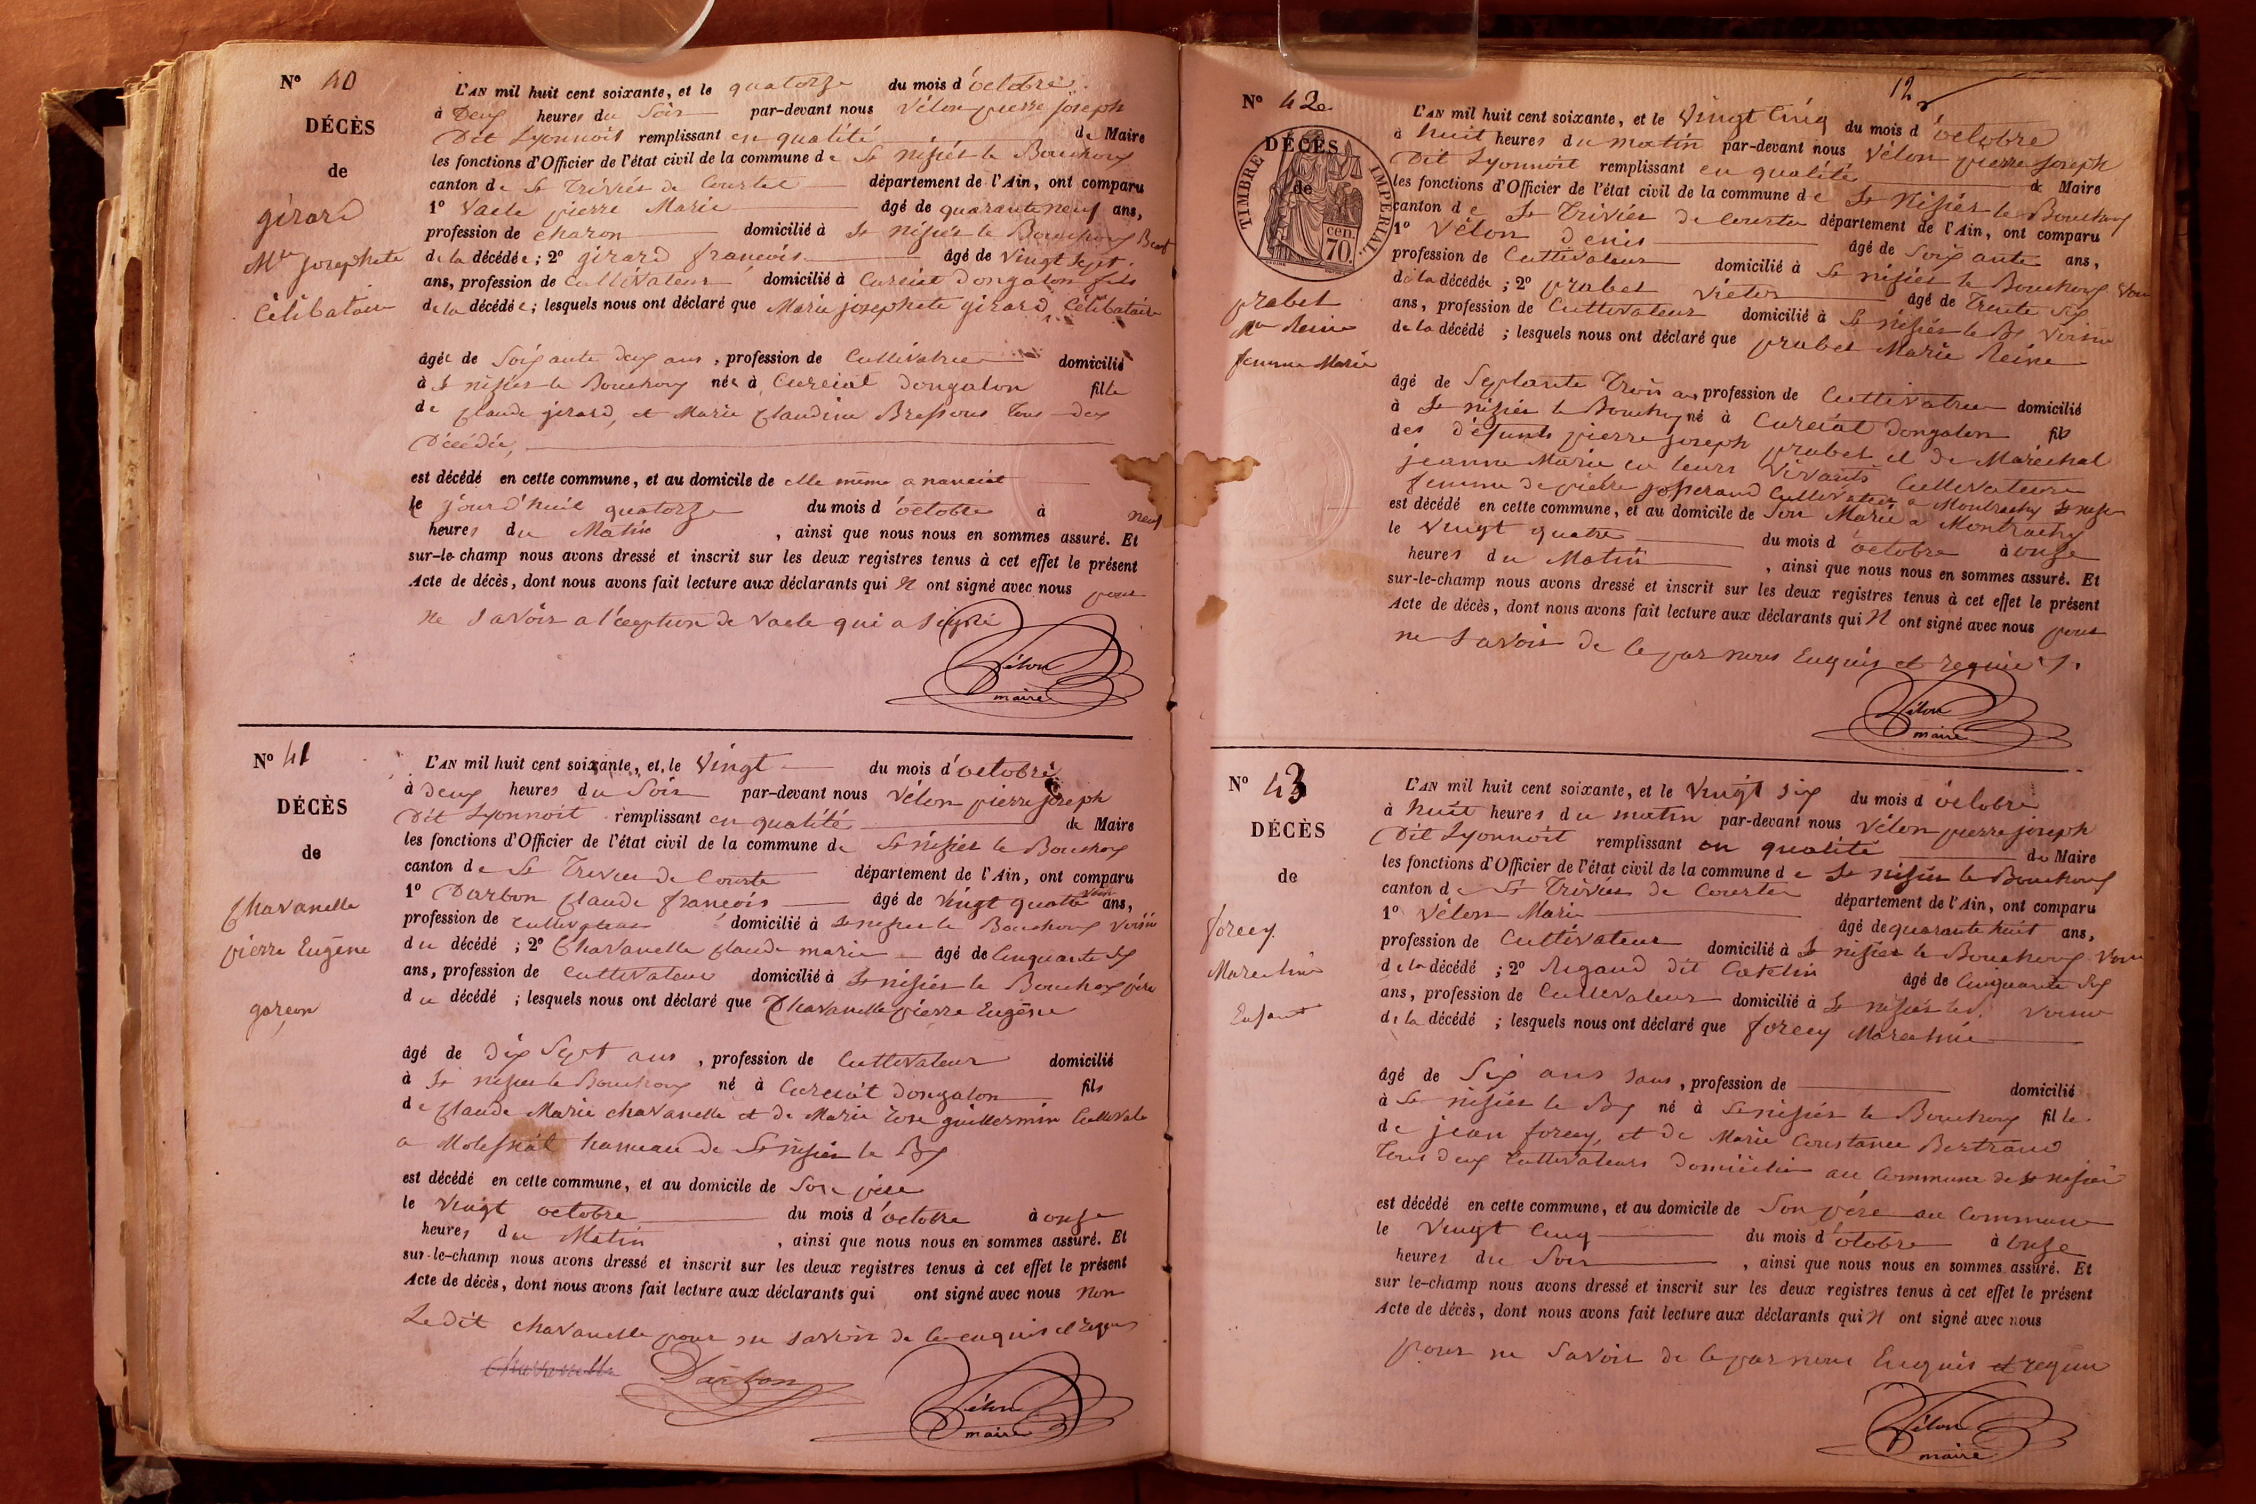 N° 40
DÉCÈS
de
girard
Mie josephete
Célibataire
L'AN mil huit cent soixante, et le quatorze du mois d'octobre
à Deux heures du Soir par-devant nous Vélon pierre joseph
Dit Lyonnois remplissant en qualité de Maire
les fonctions d'Officier de l'état civil de la commune de St nisiér le Bouchoux
canton de St Triviés de Courtet département de l'Ain, ont comparu
1° Vacle pierre Marie âgé de quarante neuf ans,
profession de charon domicilié à St nisiér le Bouchoux
de la décédée ; 2° girard francois âgé de vingt sept
ans, profession de Cultivateur domicilié à Curciat Dongalon
de la décédée ; lesquels nous ont déclaré que Marie josephete girard Célibataire
âgée de Soixante deux ans, profession de Cultivatrice domicilié
à St nisiér le Bouchoux née à Curciat Dongalon fille
de Claude girard, et Marie Claudine Tous deux
Décédés,
est décédé en cette commune, et au domicile de elle même a
le jourd'huit quatorze du mois d'octobre à neuf
heures du Matin, ainsi que nous nous en sommes assuré. Et
sur-le-champ nous avons dressé et inscrit sur les deux registres tenus à cet effet le présent
Acte de décès, dont nous avons fait lecture aux déclarants qui n ont signé avec nous pour
ne Savoir a l'éception de Vacle qui a signé
Vélon
maire
N° 41
DÉCÈS
de
Chavanelle
pierre Eugène
garçon
L'AN mil huit cent soixante, et le Vingt du mois d'octobre
à deux heures du Soir par-devant nous Vélon pierre joseph
Dit Lyonnoit remplissant en qualité de Maire
les fonctions d'Officier de l'état civil de la commune de St nisiér le Bouchoux
canton de St Trivier de Courte département de l'Ain, ont comparu
1° Darbon Claude francois âgé de Vingt quatre ans,
profession de cultivateur domicilié à St nisier le Bouchoux Voisin
du décédé ; 2° Chavanelle Claude marie âgé de Cinquante six
ans, profession de cultivateur domicilié à St nisiér le Bouchoux père
du décédé ; lesquels nous ont déclaré que Chavanelle pierre Eugène
âgé de Dix Sept ans, profession de Cultivateur domicilié
à St nisier le Bouchoux né à Curciat Dongalon fils
de Claude Marie chavanelle et de Marie guillermin
a hameau de St nisier le Bx
est décédé en cette commune, et au domicile de Son père
le Vingt octobre du mois d'octobre à onze
heures du Matin, ainsi que nous nous en sommes assuré. Et
sur-le-champ nous avons dressé et inscrit sur les deux registres tenus à cet effet le présent
Acte de décès, dont nous avons fait lecture aux déclarants qui ont signé avec nous non
Le dit chavanelle pour ne savoir de ce enquis et requis
Chavanelle Darbon Vélon
maire
12
N° 42
DÉCÈS
de
TIMBRE IMPÉRIAL
70 cen.
prabel
Mie Reine
femme Marie
L'AN mil huit cent soixante, et le Vingt Cinq du mois d'octobre
à huit heures du matin par-devant nous Vélon pierre joseph
Dit Lyonnoit remplissant en qualité de Maire
les fonctions d'Officier de l'état civil de la commune de St Nisiér le Bouchoux
canton de St Triviér de Courte département de l'Ain, ont comparu
1° Vélon Denis âgé de Soixante ans,
profession de Cultivateur domicilié à St nisiér le Bouchoux
de la décédée ; 2° prabel Victor âgé de Trente six
ans, profession de Cultivateur domicilié à St nisiér le Bx Voisin
de la décédé ; lesquels nous ont déclaré que prabel Marie Reine
âgé de Septante Trois ans, profession de Cultivatrice domicilié
à St nisiér le Bouchoux né à Curciat Dongalon fils
des défunts pierre joseph prabel et de Maréchal
jeanne Marie en leurs Vivants Cultivateurs
femme de pierre Cultivateur a
est décédé en cette commune, et au domicile de Son Marie a
le Vingt quatre du mois d'octobre à onze
heures du Matin, ainsi que nous nous en sommes assuré. Et
sur-le-champ nous avons dressé et inscrit sur les deux registres tenus à cet effet le présent
Acte de décès, dont nous avons fait lecture aux déclarants qui n ont signé avec nous pour
ne Savoir de ce par nous Enquis et requis
Vélon
maire
N° 43
DÉCÈS
de
forcey
Marceline
Enfant
L'AN mil huit cent soixante, et le Vingt six du mois d'octobre
à huit heures du matin par-devant nous Vélon pierre joseph
Dit Lyonnoit remplissant en qualité de Maire
les fonctions d'Officier de l'état civil de la commune de St nisiér le Bouchoux
canton de St Triviér de Courte département de l'Ain, ont comparu
1° Vélon Marie âgé de quarante huit ans,
profession de Cultivateur domicilié à St nisiér le Bouchoux
de la décédé ; 2° Rigaud dit Catelin âgé de Cinquante six
ans, profession de Cultivateur domicilié à St nisiér le B. Voisin
de la décédé ; lesquels nous ont déclaré que forcey Marceline
âgé de Six ans Sans, profession de domicilié
à St nisiér le Bx né à St nisiér le Bouchoux fille
de jean forcey, et de Marie Constance Bertrand
Tous deux Cultivateurs Domicilier au Commune de St nisiér
est décédé en cette commune, et au domicile de Son père au Commune
le Vingt Cinq du mois d'octobre à onze
heures du Soir, ainsi que nous nous en sommes assuré. Et
sur le-champ nous avons dressé et inscrit sur les deux registres tenus à cet effet le présent
Acte de décès, dont nous avons fait lecture aux déclarants qui n ont signé avec nous
pour ne Savoir de ce par nous Enquis et requis
Vélon
maire